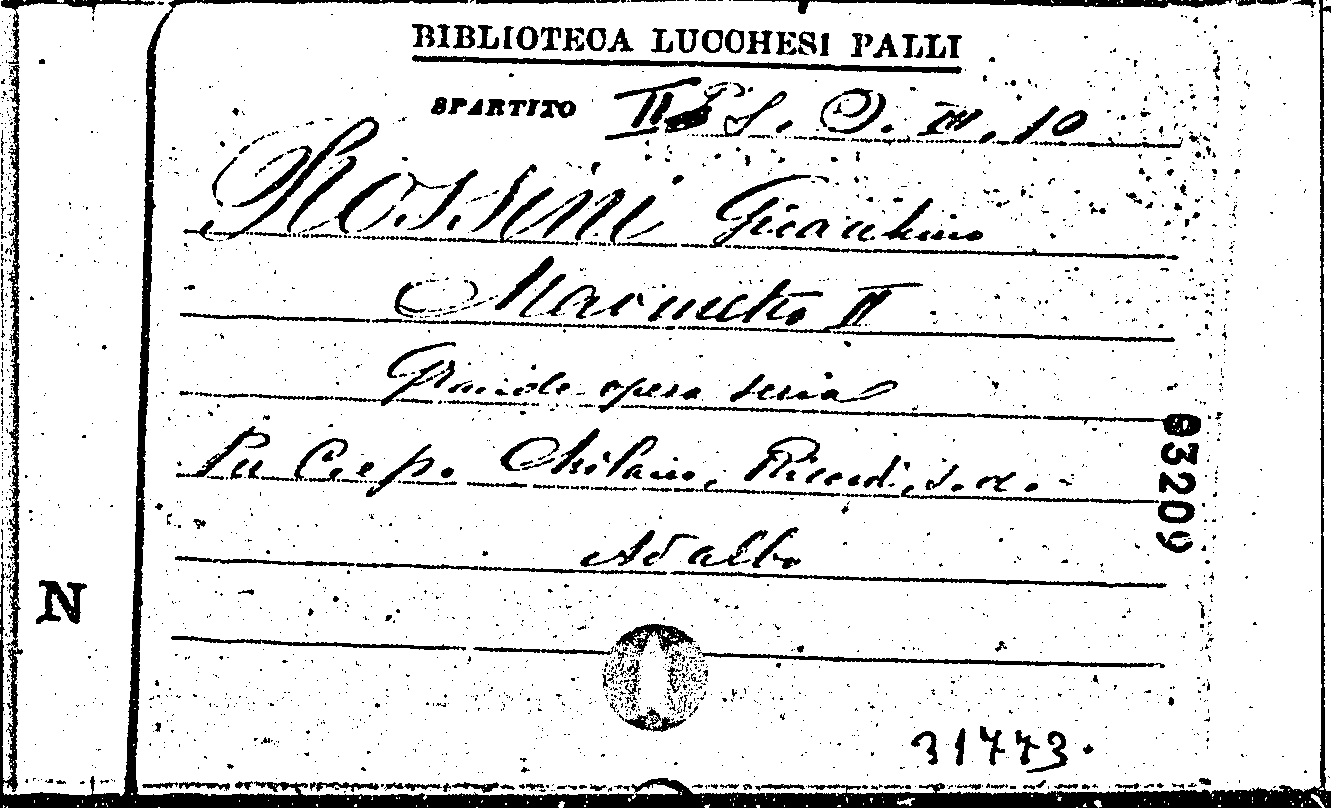 BIBLIOTECA LUCCHESI PALLI
SPARTITO II S. O. III. 10
ROSSINI Gioacchino
Maometto II
Grande opera seria
Per C. e p. Milano, Ricordi, s. a. -
Ad albo
03209
N
31773.